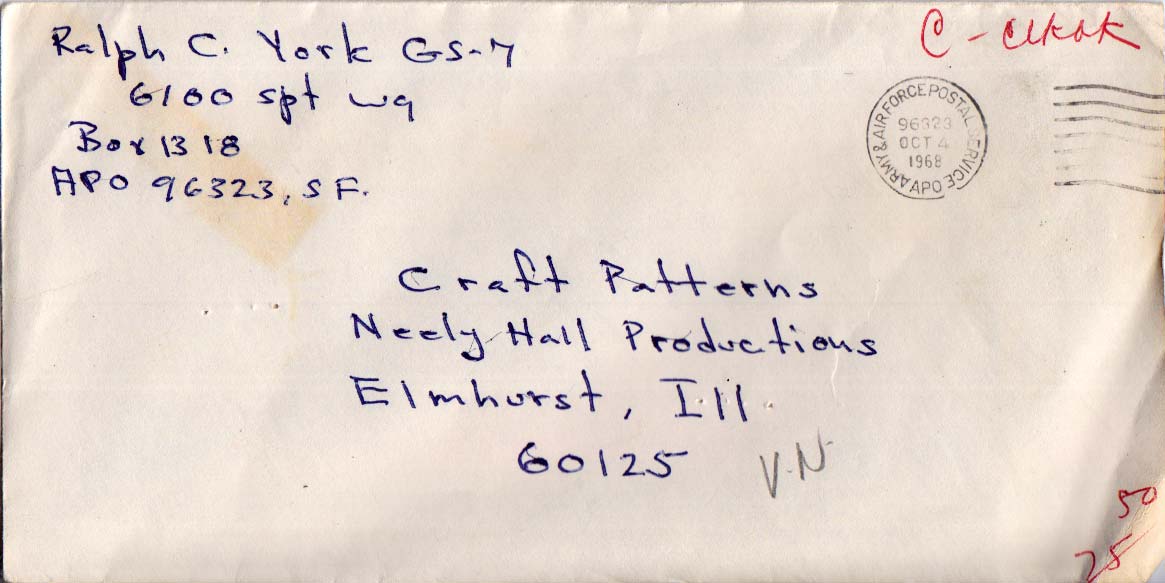 Ralph C. York GS-7
6100 spt wg
Box 1318
APO 96323, S F.
C -
ARMY & AIR FORCE POSTAL SERVICE
96323
OCT 4
1968
APO
Craft Patterns
Neely Hall Productions
Elmhurst, Ill.
60125
V.N.
50
25